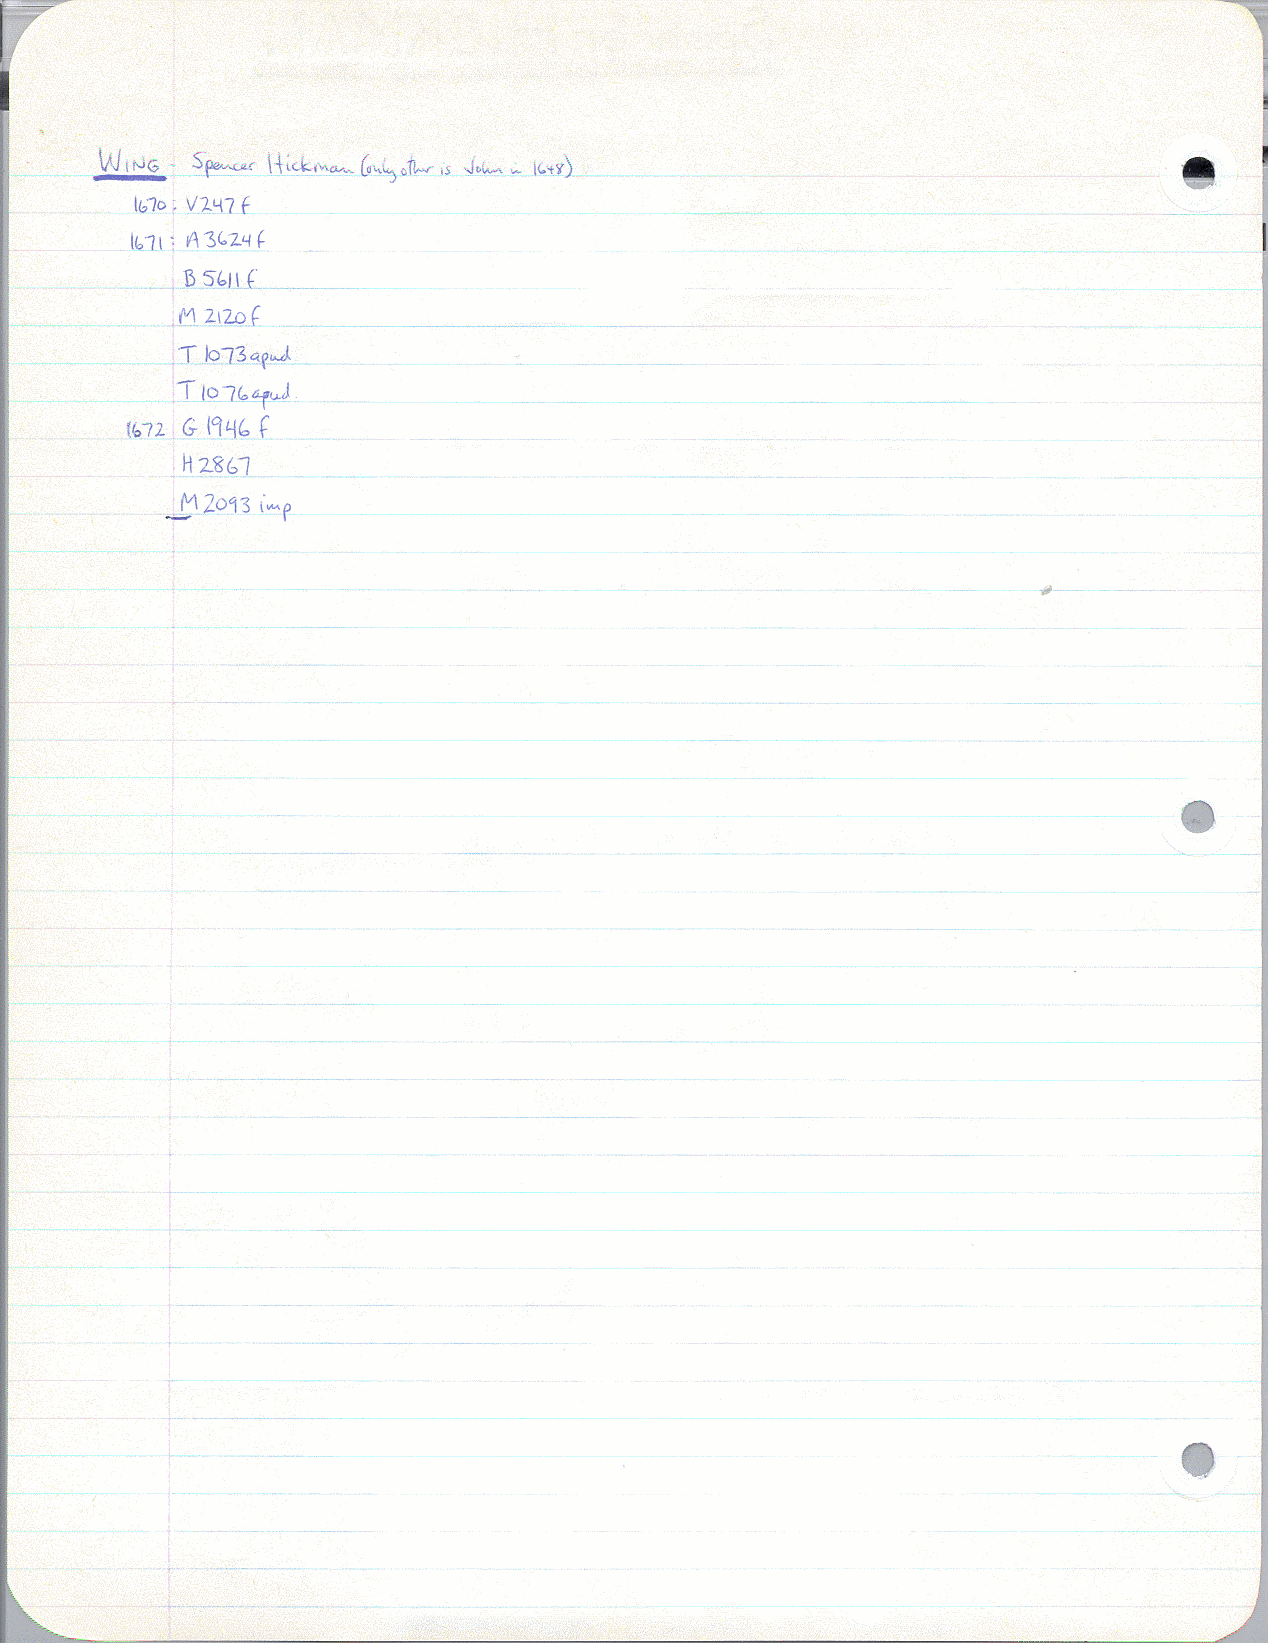 WING - Spencer Hickman (only other is John in 1648)
1670: V247 f
1671: A 3624 f
B 5611 f
M 2120 f
T 1073 apud
T 1076 apud
1672 G 1946 f
H 2867
M 2093 imp